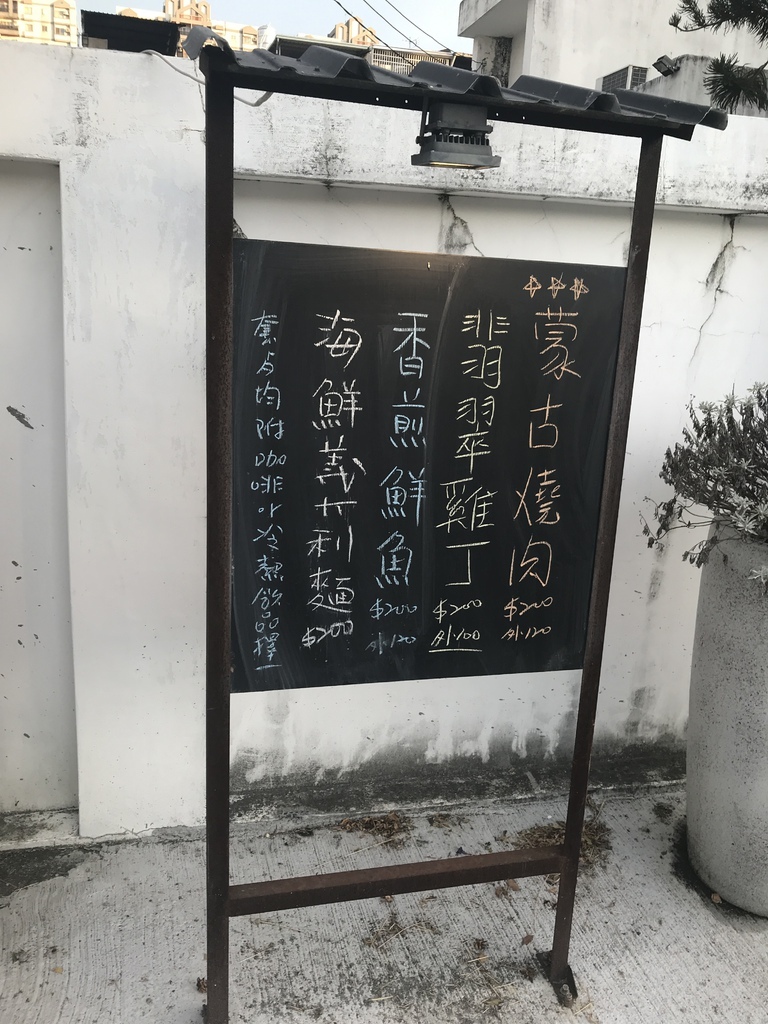 蒙古燒肉
$200
外120
翡翠雞丁
$200
外100
香煎鮮魚
$200
外120
海鮮義大利麵
$200
套占均附咖啡or冷熱飲品擇一